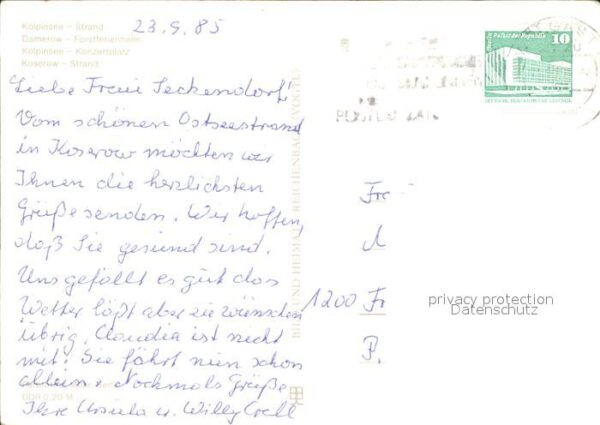 Kölpinsee – Strand
Damerow – Forstferienheim
Kölpinsee – Konzertplatz
Koserow – Strand
23.9.85
Liebe Frau Seckendorf!
Vom schönen Ostseestrand
in Koserow möchten wir
Ihnen die herzlichsten
Grüße senden. Wir hoffen,
daß Sie gesund sind.
Uns gefällt es gut das
Wetter läßt aber zu wünschen
übrig. Claudia ist nicht
mit. Sie fährt nun schon
allein. Nochmals Grüße
Ihre Ursula u. Willy
DDR 0,20 M
BILD UND HEIMAT REICHENBACH (VOGTL)
Palast der Republik
10
DEUTSCHE DEMOKRATISCHE REPUBLIK
Fr
1200 Fr
P.
privacy protection
Datenschutz